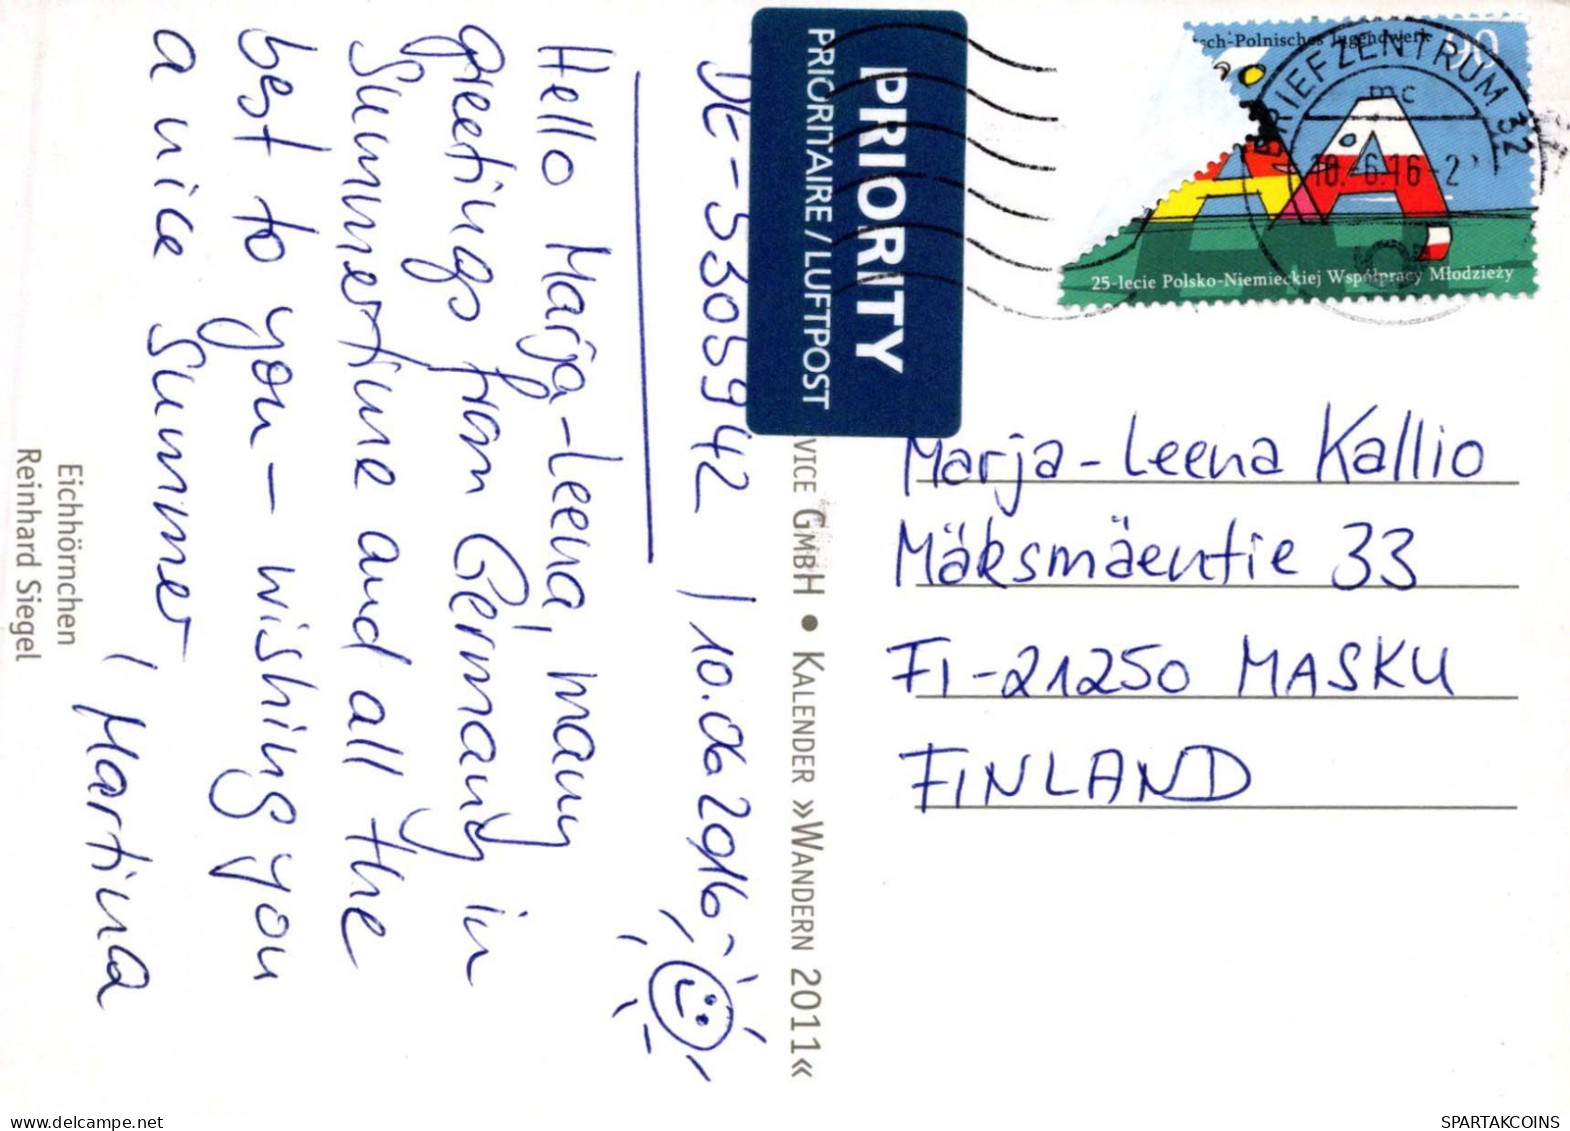 DE-5305942 / 10.06.2016
Hello Marja-Leena, many
greetings from Germany in
Summertime and all the
best to you - wishing you
a nice Summer,
/ Martina
Eichhörnchen
Reinhard Siegel
PRIORITY
PRIORITAIRE / LUFTPOST
VICE GMBH • KALENDER »WANDERN 2011«
sch-Polnisches Jugendwerk 90
25-lecie Polsko-Niemieckiej Współpracy Młodzieży
BRIEFZENTRUM 32
mc
10.-6.16-2
Marja-Leena Kallio
Mäksmäentie 33
FI-21250 MASKU
FINLAND
delcampe.net
SPARTAKCOINS